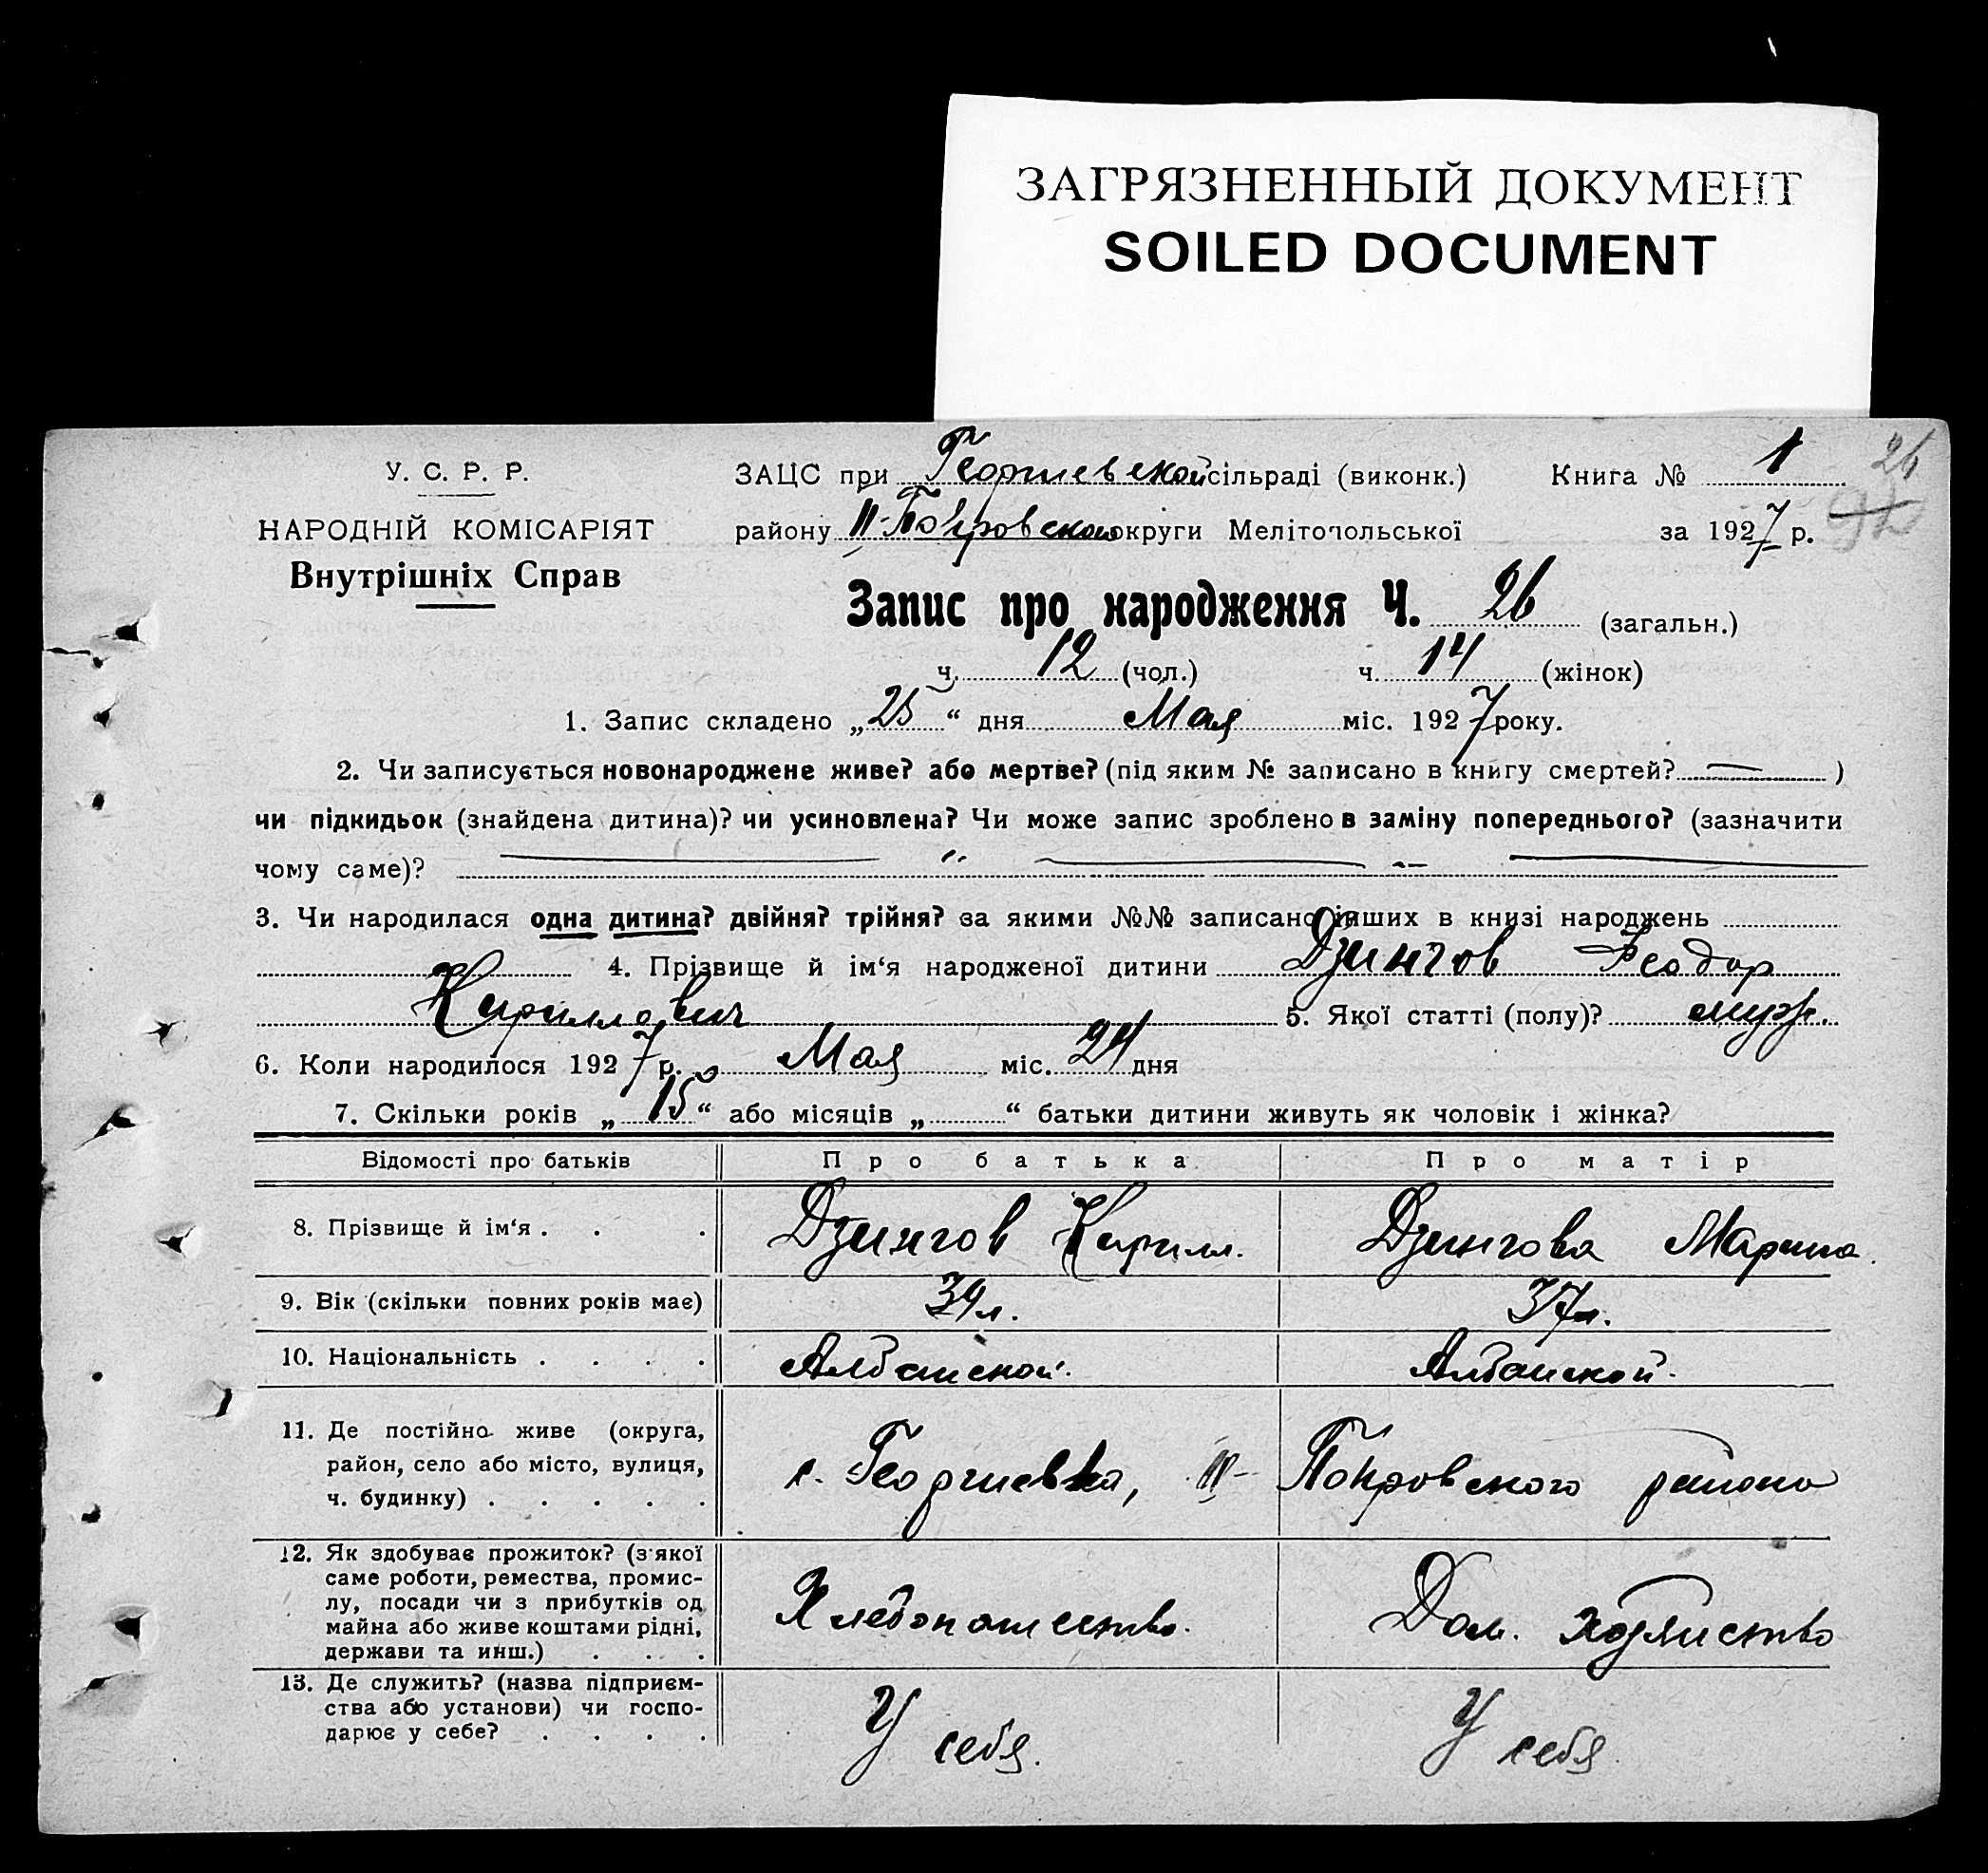 ЗАГРЯЗНЕННЫЙ ДОКУМЕНТ
SOILED DOCUMENT
У. С. Р. Р.
НАРОДНІЙ КОМІСАРІЯТ
Внутрішніх Справ
ЗАЦС при Георгиевской сільраді (виконк.) Книга № 1 26
району II-Покровского округи Мелітопольської за 1927 р.
Запис про народження Ч. 26 (загальн.)
ч. 12 (чол.) ч. 14 (жінок)
1. Запис складено „25“ дня Мая міс. 1927 року.
2. Чи записується новонароджене живе? або мертве? (під яким № записано в книгу смертей? — )
чи підкидьок (знайдена дитина)? чи усиновлена? Чи може запис зроблено в заміну попереднього? (зазначити
чому саме)?
3. Чи народилася одна дитина? двійня? трійня? за якими №№ записано інших в книзі народжень
4. Прізвище й ім‘я народженої дитини Дзингов Феодор
Кириллович 5. Якої статті (полу)? муж.
6. Коли народилося 1927 р. Мая міс. 24 дня
7. Скільки років „15“ або місяців „ “ батьки дитини живуть як чоловік і жінка?
Відомості про батьків Про батька Про матір
8. Прізвище й ім‘я . . . Дзингов Кирилл. Дзингова Марина.
9. Вік (скільки повних років має) 39 л. 37 л.
10. Національність . . . . Албанской. Албанской.
11. Де постійно живе (округа,
район, село або місто, вулиця,
ч. будинку) . . . . .
с. Георгиевка, II- Покровского района
12. Як здобуває прожиток? (з якої
саме роботи, ремества, промис-
лу, посади чи з прибутків од
майна або живе коштами рідні,
держави та инш.) . . .
Хлебопашество. Дом. хозяйство
13. Де служить? (назва підприєм-
ства або установи) чи госпо-
дарює у себе? . . . .
У себя. У себя.